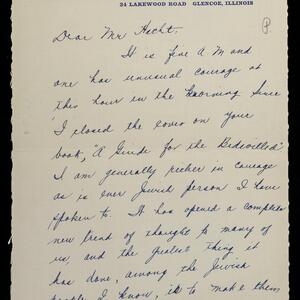 34 LAKEWOOD ROAD GLENCOE, ILLINOIS
P.
Dear Mr Hecht,
It is five A M and
one has unusual courage at
this hour in the morning. Since
I closed the cover on your
book, "A Guide for the Bedevilled"
I am generally richer in courage
as is ever Jewish person I have
spoken to. It has opened a complete
new trend of thought to many of
us, and the greatest thing it
has done, among the Jewish
people I know, is to make them